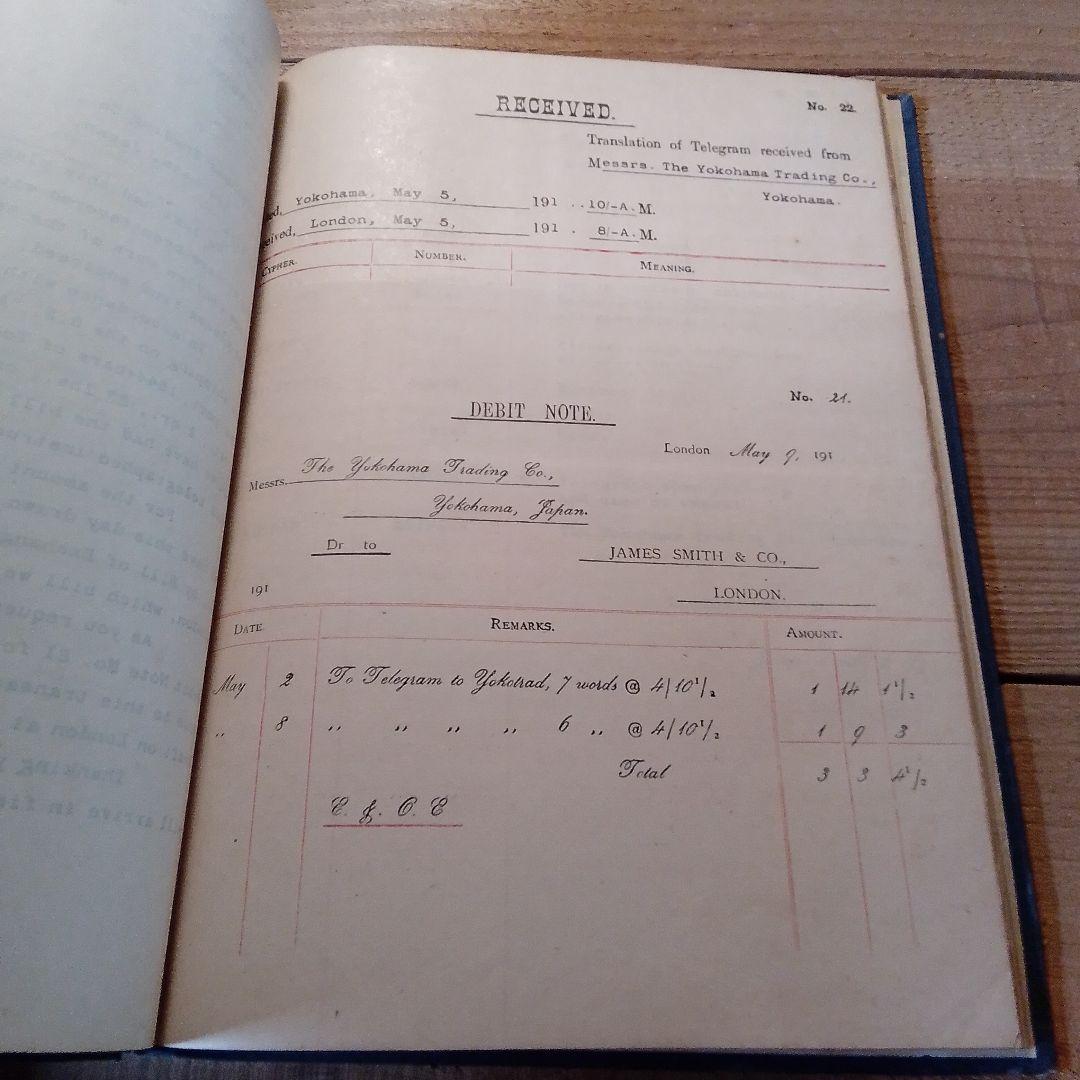 RECEIVED.
No. 22.
Translation of Telegram received from
Messrs. The Yokohama Trading Co.,
Yokohama.
Yokohama, May 5, 191 . . 10/-A.M.
London, May 5, 191 . 8/-A.M.
CYPHER. NUMBER. MEANING.
No. 21.
DEBIT NOTE.
London May 9, 191
Messrs. The Yokohama Trading Co.,
Yokohama, Japan.
Dr to JAMES SMITH & CO.,
191 LONDON.
DATE REMARKS. AMOUNT.
May 2 To Telegram to Yokotrad, 7 words @ 4/10 1/2 1 14 1 1/2
,, 8 ,, ,, ,, ,, 6 ,, @ 4/10 1/2 1 9 3
Total 3 3 4 1/2
E. &. O. E